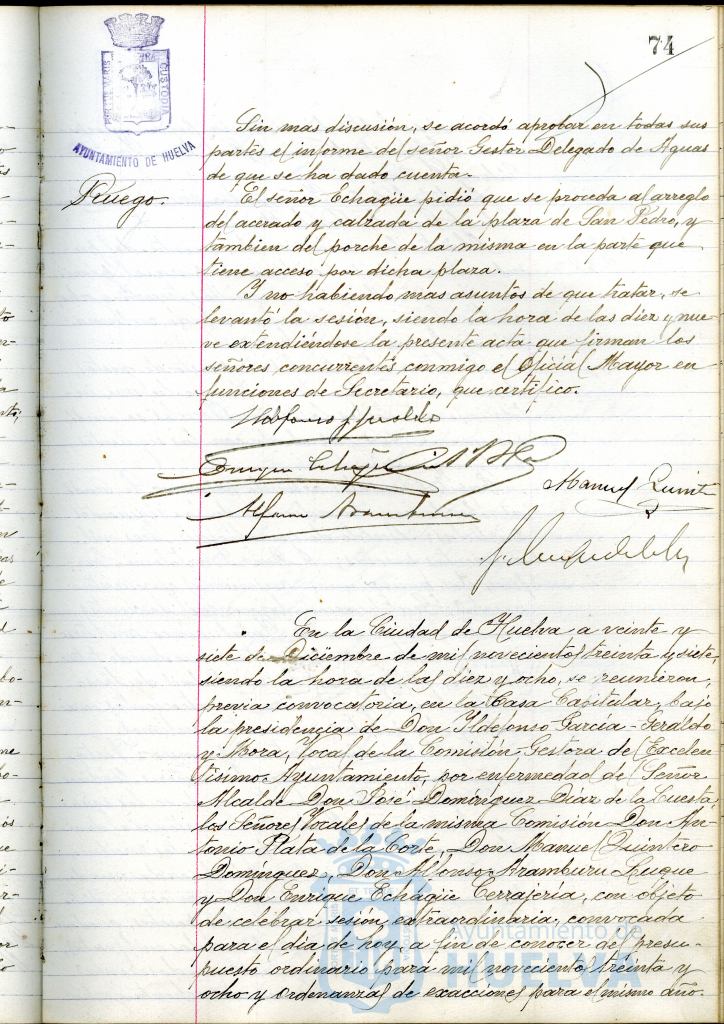 74
PORTUS MARIS ET TERRAE CUSTODIA
AYUNTAMIENTO DE HUELVA
Sin mas discusión, se acordó aprobar en todas sus
partes el informe del señor Gestor Delegado de Aguas
de que se ha dado cuenta.
Ruego.
El señor Echagüe pidió que se proceda al arreglo
del acerado y calzada de la plaza de San Pedro, y
tambien del porche de la misma en la parte que
tiene acceso por dicha plaza.
Y no habiendo mas asuntos de que tratar, se
levantó la sesión, siendo la hora de las diez y nue-
ve extendiéndose la presente acta que firman los
señores concurrentes conmigo el Oficial Mayor en
funciones de Secretario, que certifico.
Ildefonso
Enrique Echagüe
Manuel Quintero
Alfonso Aramburu
En la Ciudad de Huelva a veinte y
siete de Diciembre de mil novecientos treinta y siete,
siendo la hora de las diez y ocho, se reunieron,
previa convocatoria, en la Casa Capitular, bajo
la presidencia de Don Ildefonso García-Geraldo
y Mora, Vocal de la Comisión Gestora del Excelen-
tísimo Ayuntamiento, por enfermedad del Señor
Alcalde Don José Domínguez Díaz de la Cuesta,
los Señores Vocales de la misma Comisión Don An-
tonio Plata de la Corte, Don Manuel Quintero
Domínguez, Don Alfonso Aramburu Luque
y Don Enrique Echagüe Cerrajería, con objeto
de celebrar sesión extraordinaria, convocada
para el dia de hoy, a fin de conocer del presu-
puesto ordinario para mil novecientos treinta y
ocho y ordenanzas de exacciones para el mismo año.
Ayuntamiento de
HUELVA